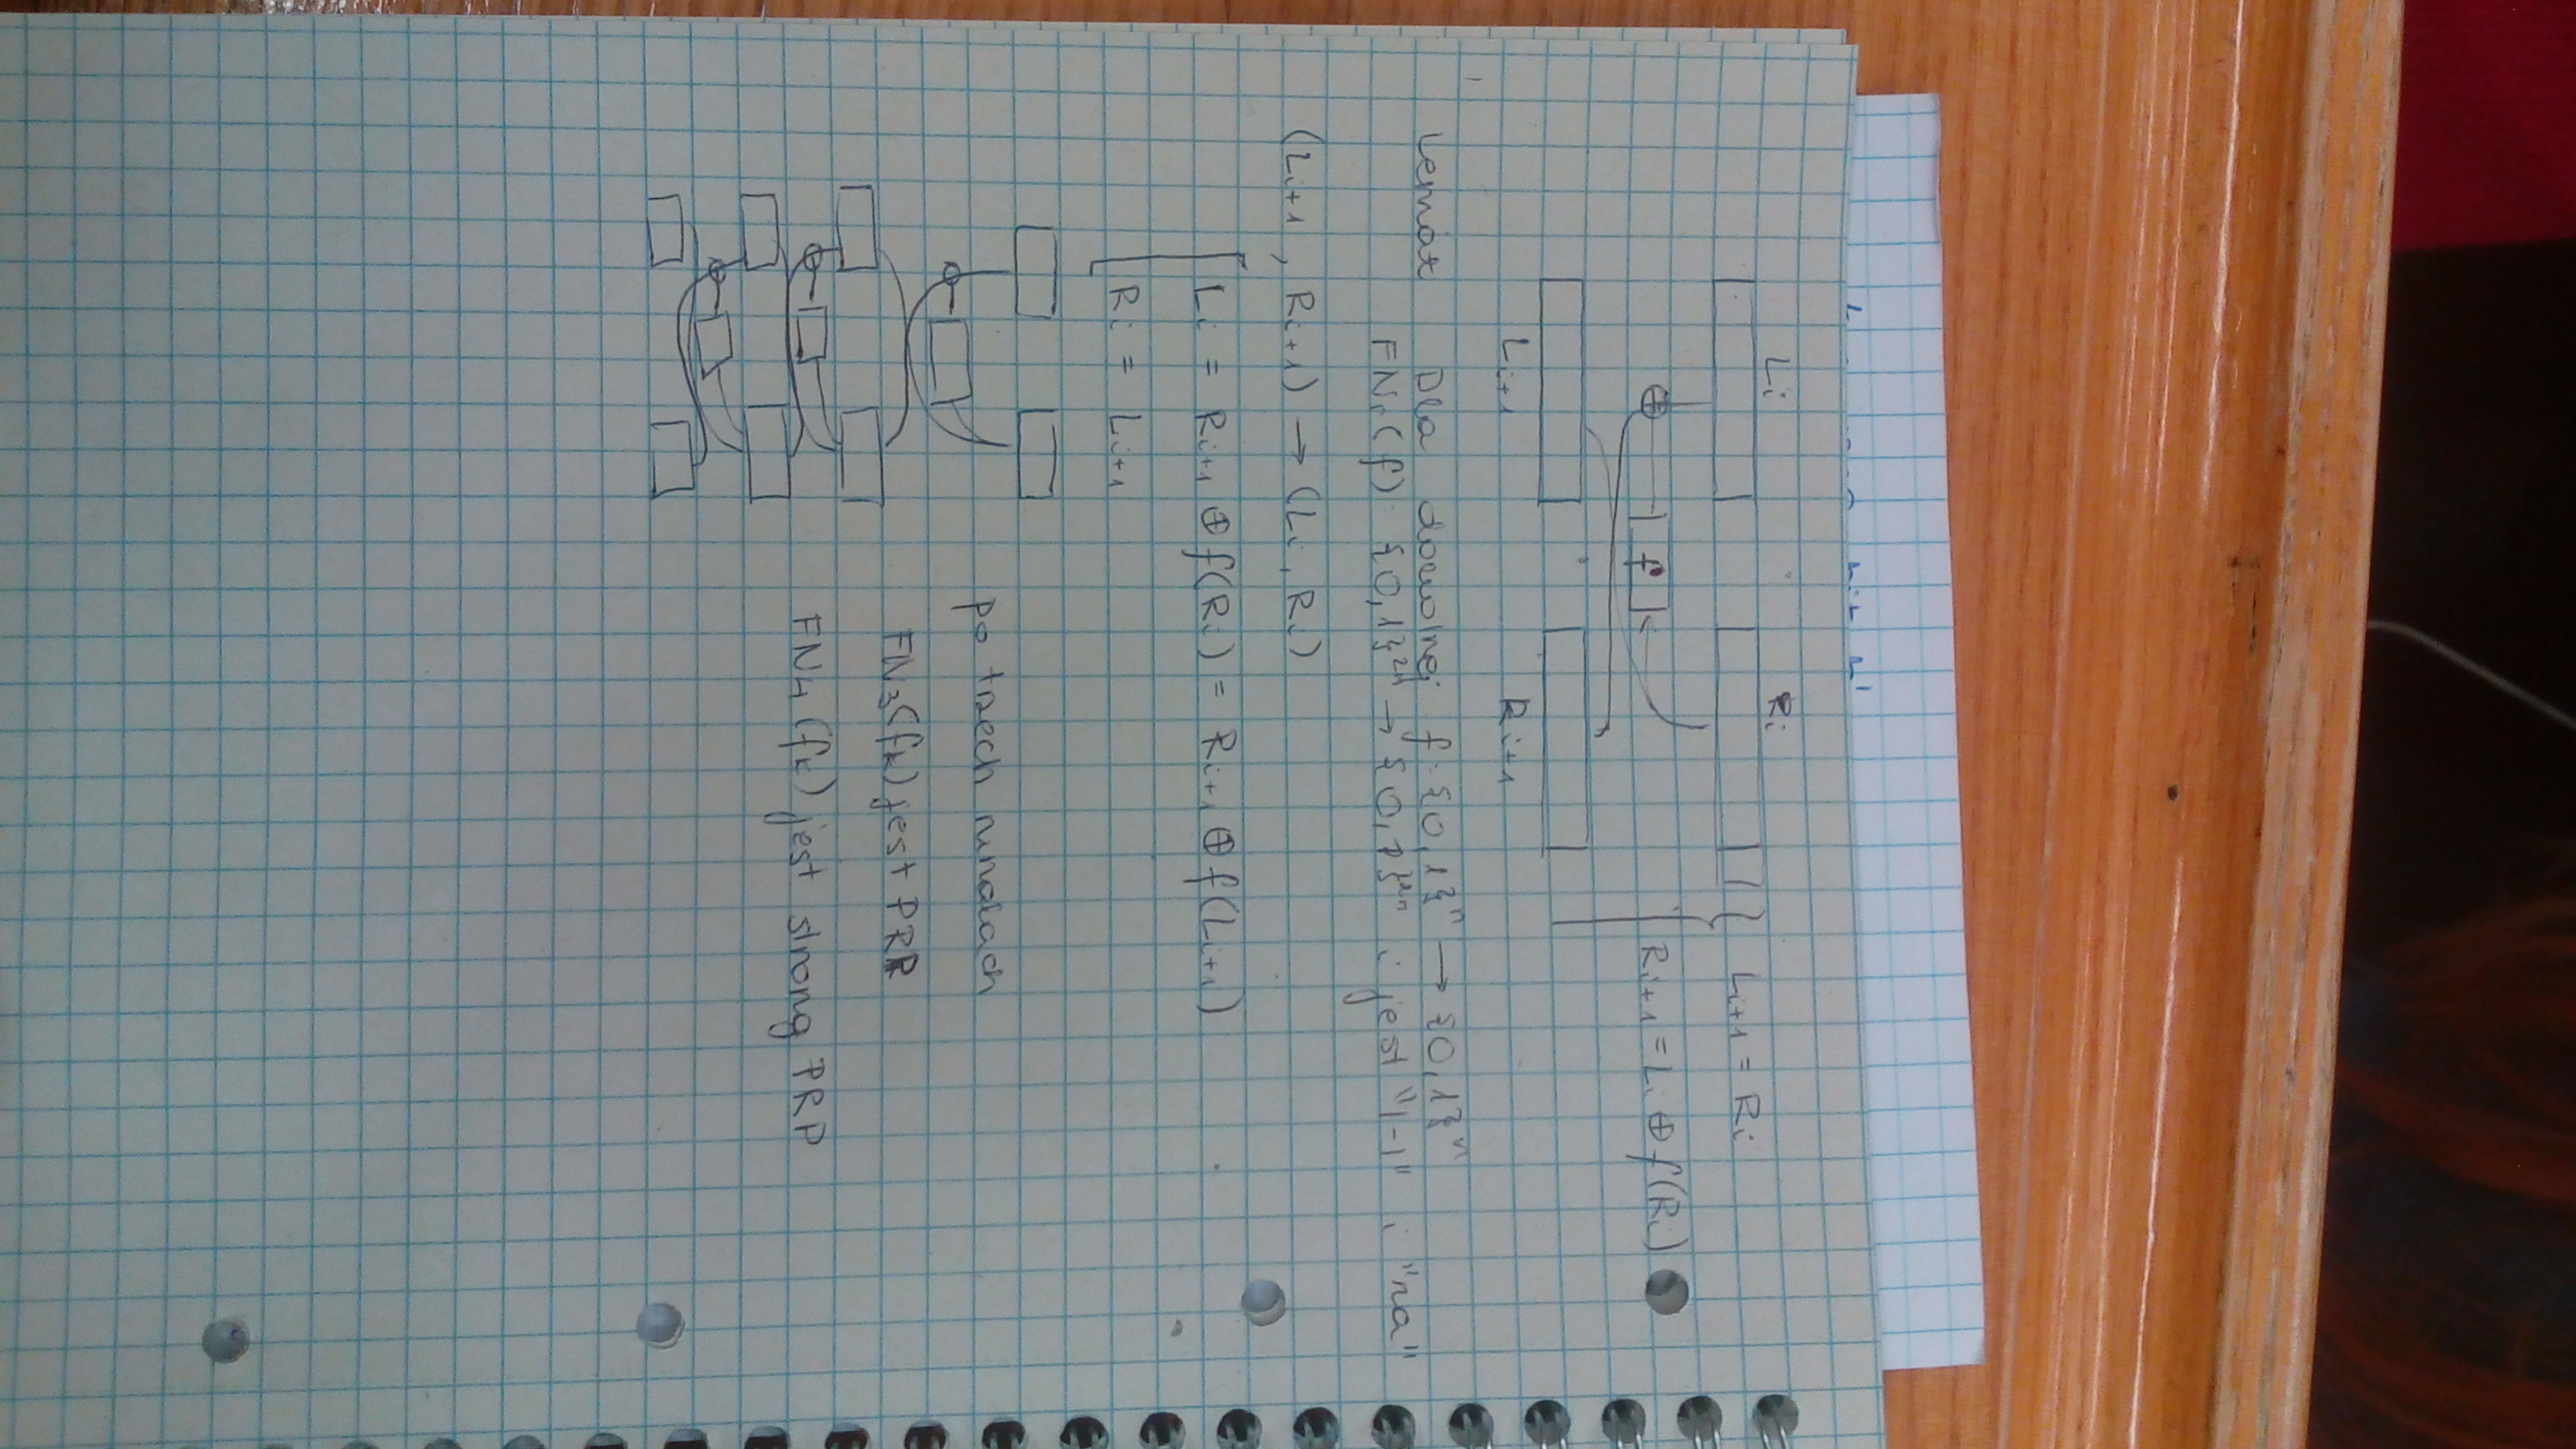 Li Ri
Li+1 = Ri
f
Ri+1 = Li ⊕ f(Ri)
Li+1 Ri+1
Lemat Dla dowolnej f: {0,1}ⁿ → {0,1}ⁿ
FNf(f): {0,1}²ⁿ → {0,1}²ⁿ i jest "1-1" i "na"
(Li+1, Ri+1) → (Li, Ri)
Li = Ri+1 ⊕ f(Ri) = Ri+1 ⊕ f(Li+1)
Ri = Li+1
po trzech rundach
FN3(fk) jest PRP
FN4(fk) jest strong PRP